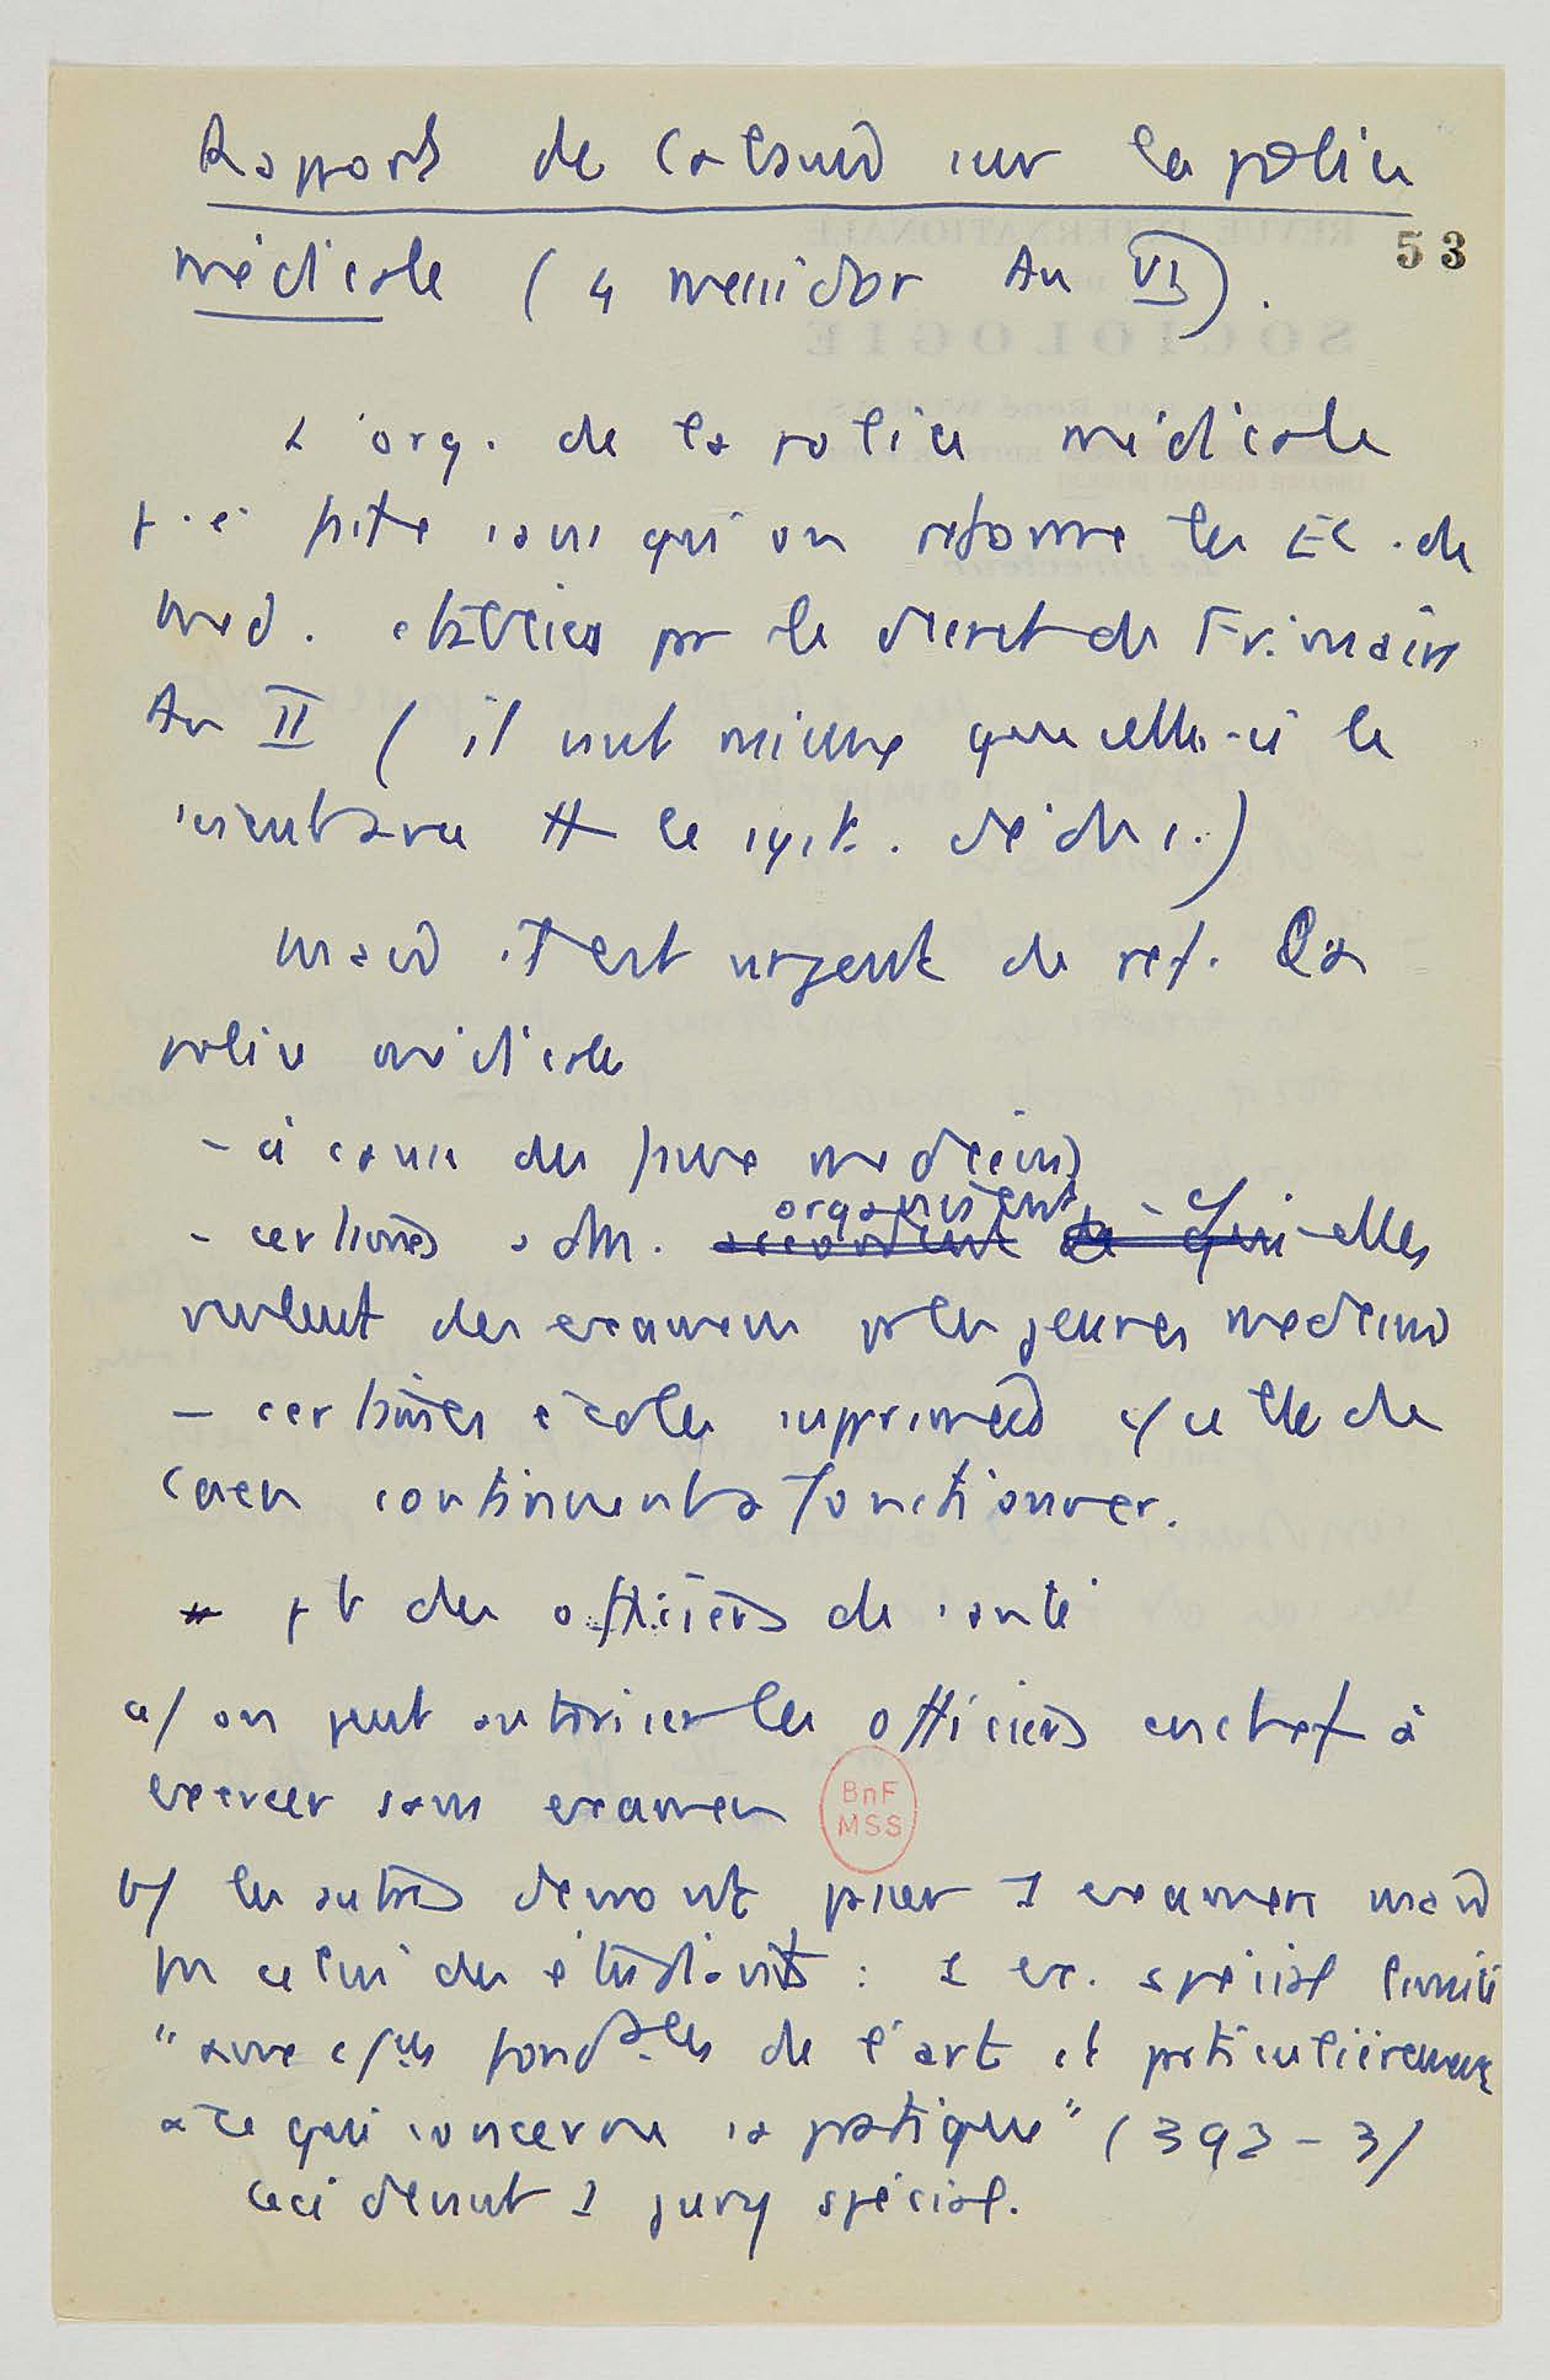 Rapport de Calès sur la police
53
médicale (4 messidor An VI).
L'org. de la police médicale
p. ê. faite sans qu'on reforme les Ec. de
Med. établies par le decret de Frimaire
An II (il vaut mieux que celles-ci le
le syst. des
mais il est urgent de ref. la
police médicale
- à cause des faux medecins
- certaines adm. organisent
accordent de qui elles
veulent des examens pr les jeunes medecins
- certaines écoles supprimees c/ celle de
Caen continuent à fonctionner.
pb des officiers de santé
a/ on peut autoriser les officiers en chef à
exercer sans examen
b/ les autres devront passer 1 examen mais
pas celui des étudiants : 1 ex. spécial limité
"aux c/ces fondales de l'art et particulièrement
à ce qui concerne la pratique" (392-3)
Ceci devant 1 jury spécial.
BnF
MSS